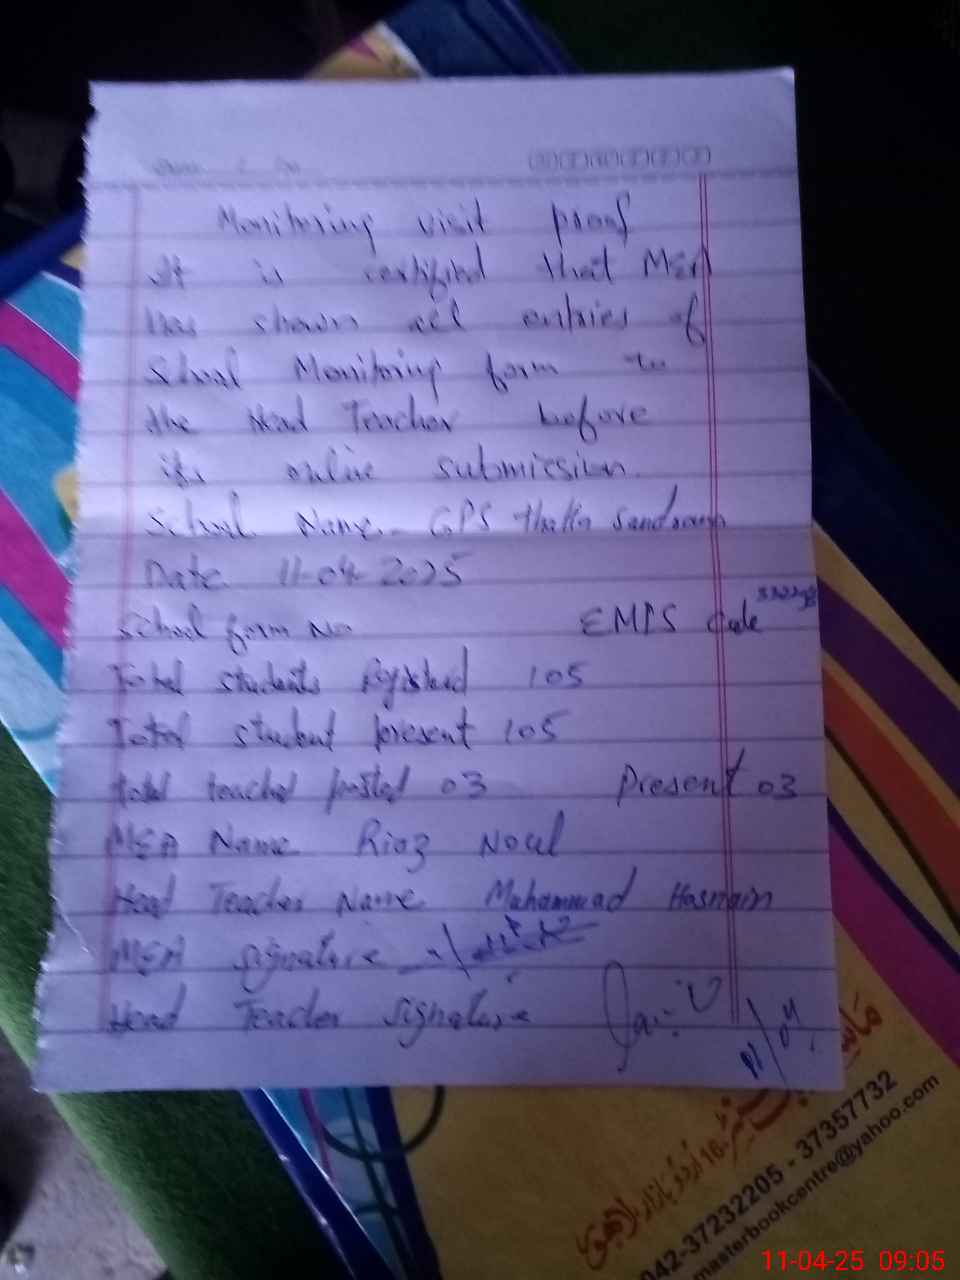 Monitoring visit proof
It is certified that MEA
has shown all entries of
School Monitoring form to
the Head Teacher before
its online submission.
School Name. GPS
Date 11-04-2025
School form No EMIS Code
Total students 105
Total student present 105
total teacher posted 03 Present 03
MEA Name Riaz
Head Teacher Name Muhammad Hasnain
MEA signature
Head Teacher signature
11/04
042-37232205 - 37357732
masterbookcentre@yahoo.com
11-04-25 09:05